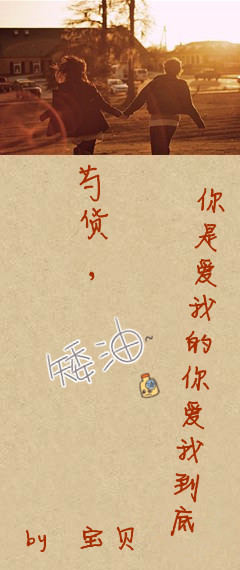 芍货，
你是爱我的你爱我到底
矮油~
by 宝贝